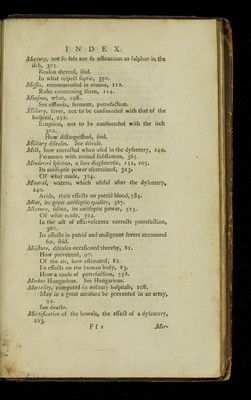 INDEX.
Mercury, not so safe nor so efficacious as sulphur in the
itch, 303.
Reason thereof, ibid.
In what respect septic, 350.
Messes, recommended in armies, 112.
Rules concerning them, 114.
Miasma, what, 298.
See effluvia, ferment, putrefaction.
Miliary, fever, not to be confounded with that of the
hospital, 252.
Eruption, not to be confounded with the itch
302.
How distinguished, ibid.
Military diseases. See disease.
Milk, how corrected when used in the dysentery, 240.
Ferments with animal substances, 365.
Mindereri spiritus, a sure diaphoretic, 131, 205.
Its antiseptic power ascertained, 323.
Of what made, 324.
Mineral, waters, which useful after the dysentery,
240.
Acids, their effects on putrid blood, 384.
Mint, its great antiseptic quality, 367.
Mixture, saline, its antiseptic power, 323.
Of what made, 324.
In the act of effervescence corrects putrefaction,
386.
Its effects in putrid and malignant fevers accounted
for, ibid.
Moisture, diseases occasioned thereby, 81.
How prevented, 97.
Of the air, how estimated, 82.
Its effects on the human body, 83.
How a cause of putrefaction, 338.
Morbus Hungaricus. See Hungaricus.
Mortality, computed in military hospitals, 108.
May in a great measure be prevented in an army,
94.
See deaths.
Mortification of the bowels, the effect of a dysentery,
223.
F f 2 Mor-